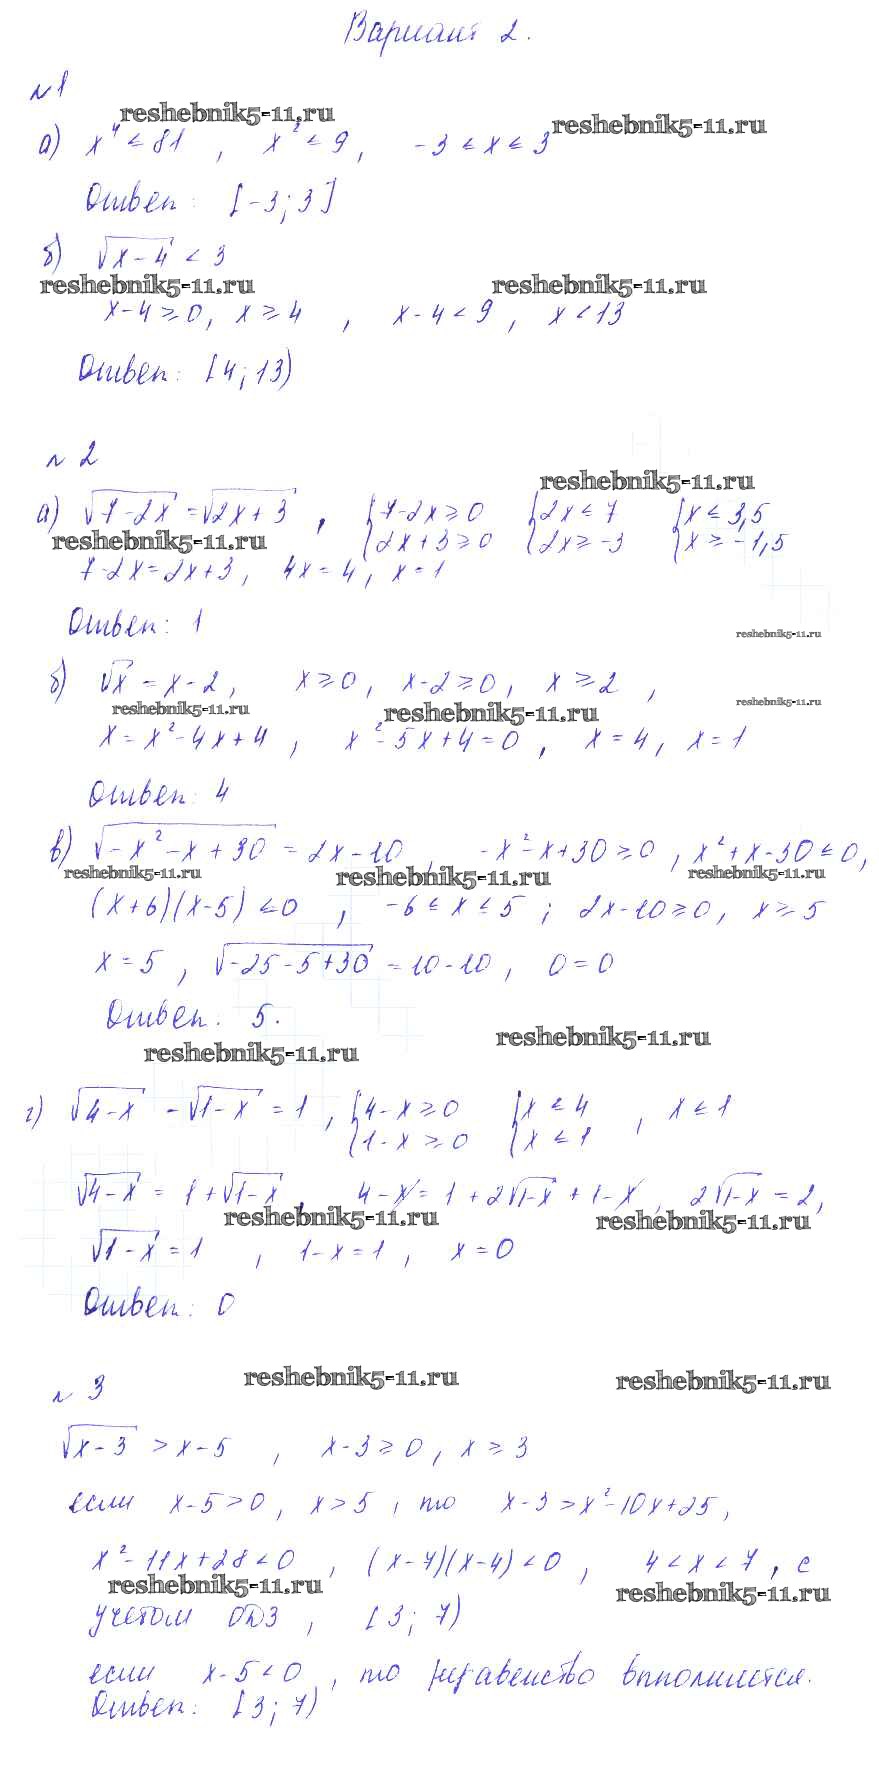 Вариант 2.
№1
reshebnik5-11.ru
reshebnik5-11.ru
а) x⁴ ≤ 81 , x² ≤ 9 , -3 ≤ x ≤ 3
Ответ: [-3; 3]
б) √(x-4) < 3
reshebnik5-11.ru reshebnik5-11.ru
x-4 ≥ 0, x ≥ 4 , x-4 < 9 , x < 13
Ответ: [4; 13)
№ 2
reshebnik5-11.ru
а) √(7-2x) = √(2x+3) , { 7-2x ≥ 0 { 2x ≤ 7 { x ≤ 3,5
reshebnik5-11.ru { 2x+3 ≥ 0 { 2x ≥ -3 { x ≥ -1,5
7-2x = 2x+3, 4x = 4, x = 1
Ответ: 1
reshebnik5-11.ru
б) √x = x-2, x ≥ 0, x-2 ≥ 0, x ≥ 2 ,
reshebnik5-11.ru reshebnik5-11.ru reshebnik5-11.ru
x = x²-4x+4 , x²-5x+4=0 , x = 4, x = 1
Ответ: 4
в) √(-x²-x+30) = 2x-10 , -x²-x+30 ≥ 0 , x²+x-30 ≤ 0,
reshebnik5-11.ru reshebnik5-11.ru reshebnik5-11.ru
(x+6)(x-5) ≤ 0 , -6 ≤ x ≤ 5 ; 2x-10 ≥ 0, x ≥ 5
x = 5 , √(-25-5+30) = 10-10, 0 = 0
Ответ: 5.
reshebnik5-11.ru reshebnik5-11.ru
г) √(4-x) - √(1-x) = 1 , { 4-x ≥ 0 { x ≤ 4 , x ≤ 1
{ 1-x ≥ 0 { x ≤ 1
√(4-x) = 1+√(1-x) , 4-x = 1+2√(1-x)+1-x, 2√(1-x) = 2,
reshebnik5-11.ru reshebnik5-11.ru
√(1-x) = 1 , 1-x = 1 , x = 0
Ответ: 0
reshebnik5-11.ru reshebnik5-11.ru
№ 3
√(x-3) > x-5 , x-3 ≥ 0, x ≥ 3
если x-5 > 0, x > 5 , то x-3 > x²-10x+25,
x²-11x+28 < 0 , (x-7)(x-4) < 0 , 4 < x < 7 , с
reshebnik5-11.ru reshebnik5-11.ru
учетом ОДЗ , [3; 7)
если x-5 < 0 , то неравенство выполняется.
Ответ: [3; 7)